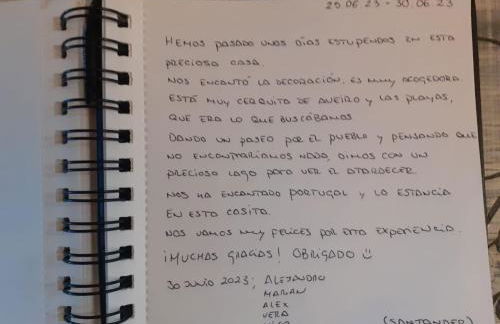 25.06.23 - 30.06.23
HEMOS PASADO UNOS DÍAS ESTUPENDOS EN ESTA
PRECIOSA CASA.
NOS ENCANTÓ LA DECORACIÓN. ES MUY ACOGEDORA.
ESTÁ MUY CERQUITA DE AVEIRO Y LAS PLAYAS,
QUE ERA LO QUE BUSCÁBAMOS.
DANDO UN PASEO POR EL PUEBLO Y PENSANDO QUE
NO ENCONTRARÍAMOS NADA, DIMOS CON UN
PRECIOSO LAGO PARA VER EL ATARDECER.
NOS HA ENCANTADO PORTUGAL Y LA ESTANCIA
EN ESTA CASITA.
NOS VAMOS MUY FELICES POR ESTA EXPERIENCIA.
¡MUCHAS GRACIAS! OBRIGADO
30 JUNIO 2023; ALEJANDRO
MARIAN
ALEX
VERA
(SANTANDER)